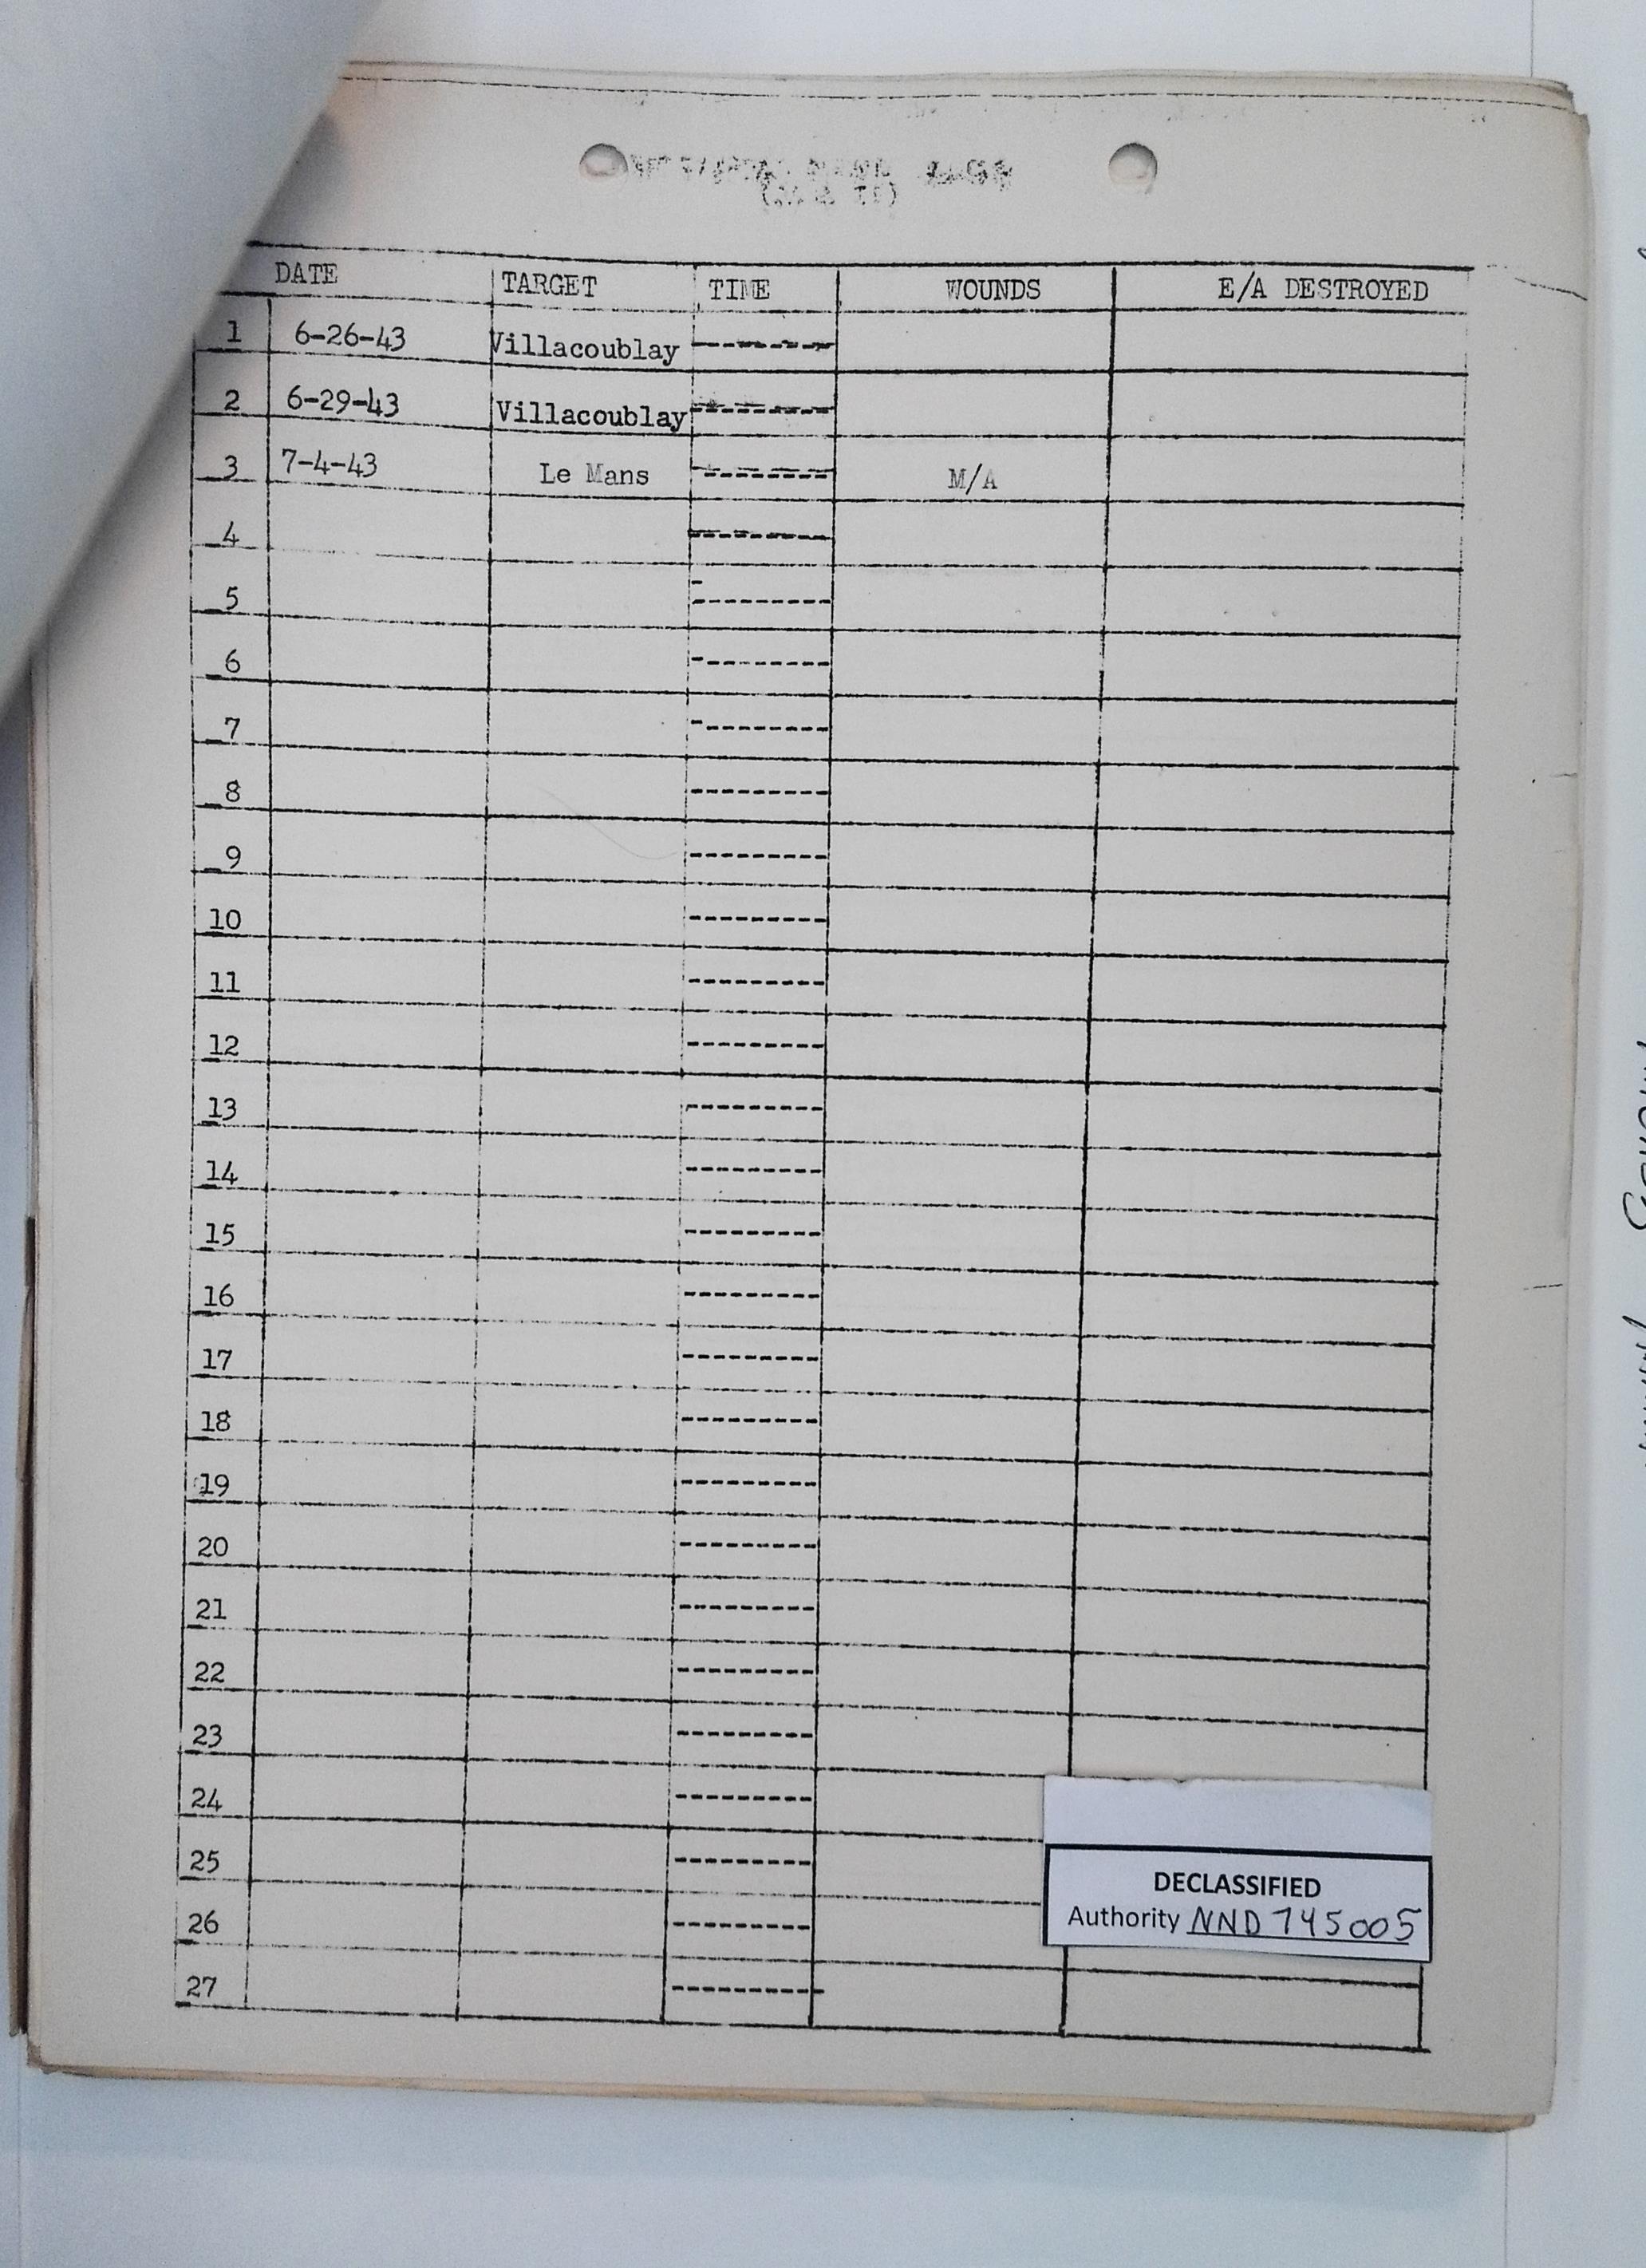 DATE TARGET TIME WOUNDS E/A DESTROYED
1 6-26-43 Villacoublay ---------
2 6-29-43 Villacoublay ---------
3 7-4-43 Le Mans --------- M/A
4 ---------
5 ---------
6 ---------
7 ---------
8 ---------
9 ---------
10 ---------
11 ---------
12 ---------
13 ---------
14 ---------
15 ---------
16 ---------
17 ---------
18 ---------
19 ---------
20 ---------
21 ---------
22 ---------
23 ---------
24 ---------
25 ---------
26 ---------
27 ---------
DECLASSIFIED
Authority NND 745005